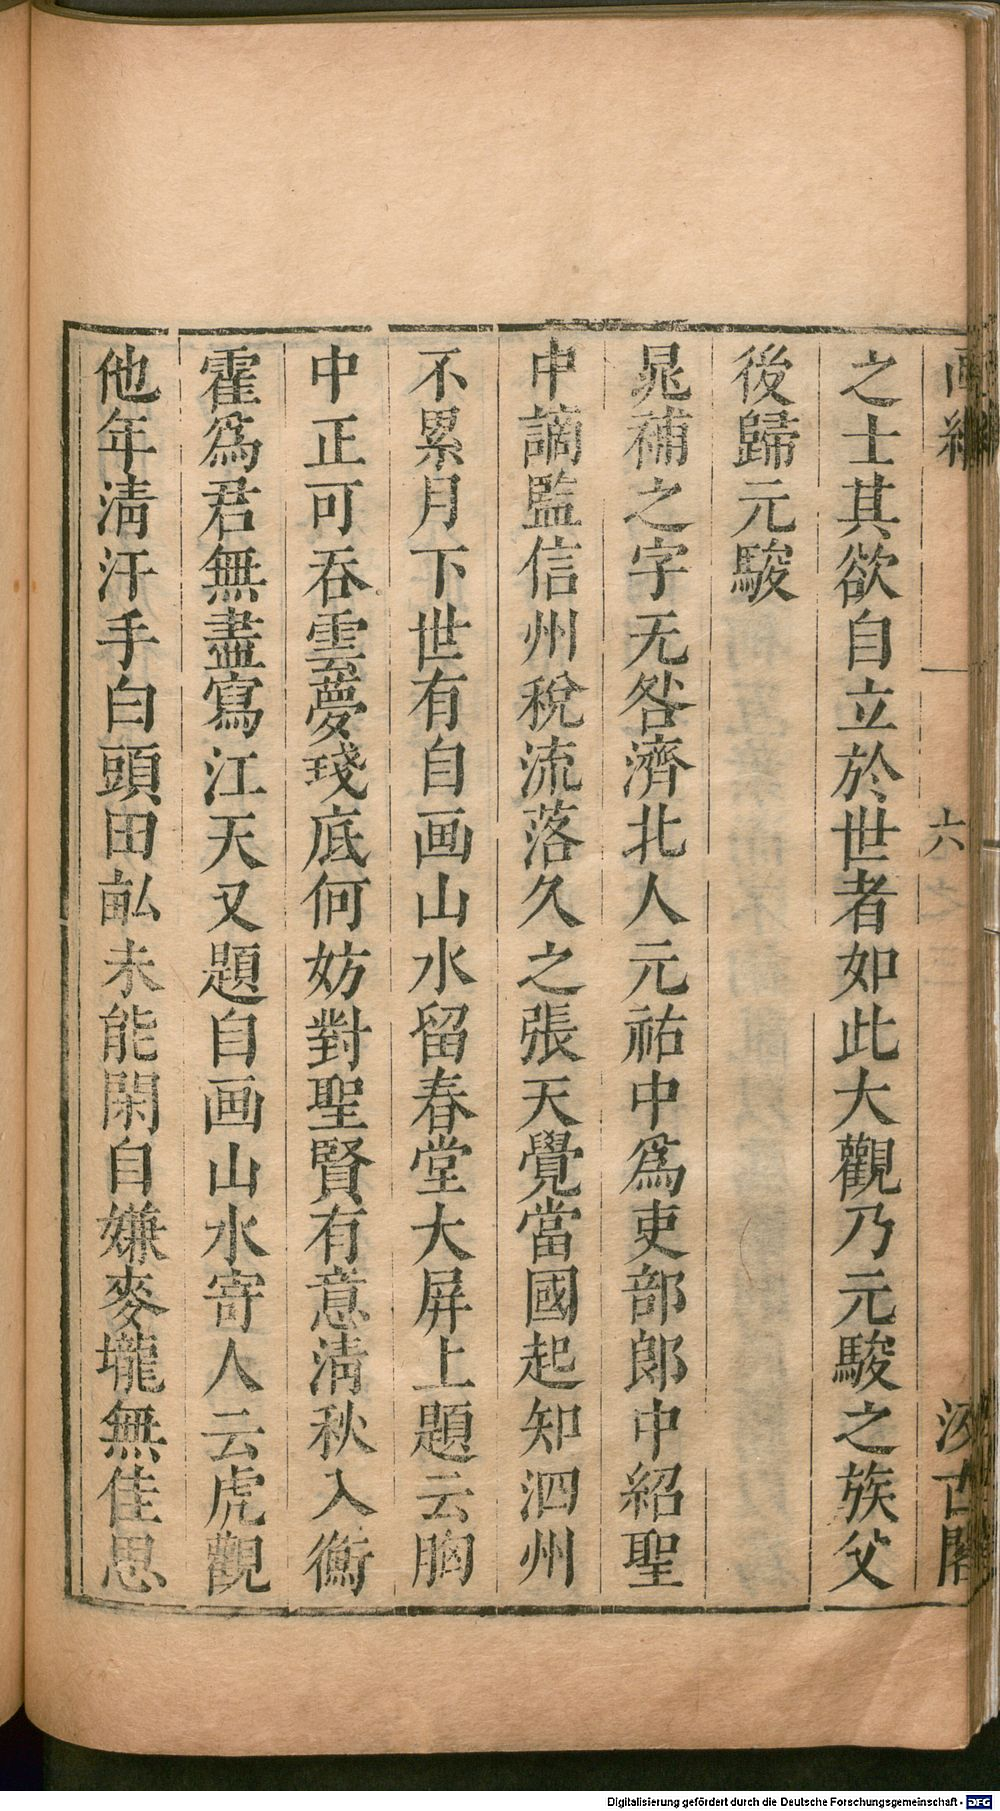 六
汲古閣
之士其欲自立於世者如此大觀乃元駿之族父
後歸元駿
晁補之字无咎濟北人元祐中爲吏部郎中紹聖
中謫監信州稅流落久之張天覺當國起知泗州
不累月下世有自画山水留春堂大屏上題云胸
中正可吞雲夢琖底何妨對聖賢有意淸秋入衡
霍爲君無盡寫江天又題自画山水寄人云虎觀
他年淸汗手白頭田畆未能閑自嫌麥壠無佳思
Digitalisierung gefördert durch die Deutsche Forschungsgemeinschaft - DFG